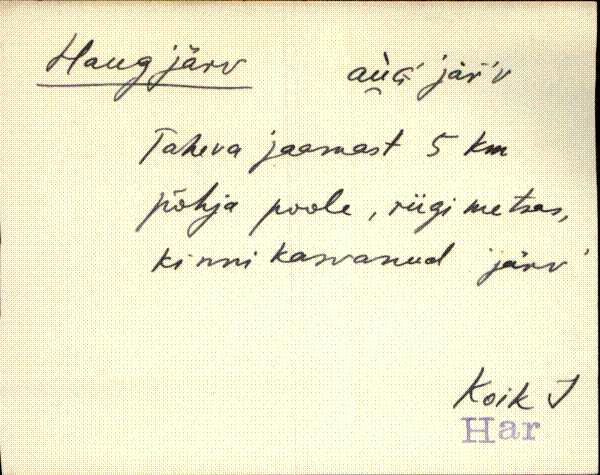 Haugjärv aùG' jär'v
Taheva jaamast 5 km
põhja poole, riigi metsas,
kinni kasvanud järv
Koik J
Har